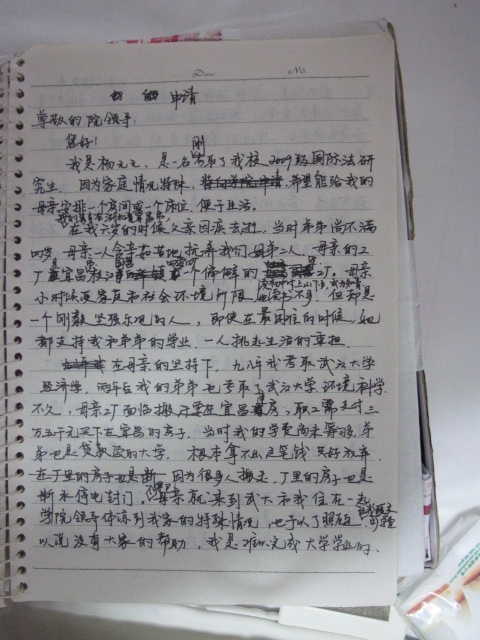 Date No.
申请
尊敬的院领导：
您好！
我是杨元元，是一名刚考取了我校2009级国际法研
究生。因为家庭情况特殊，希望能给我的
母亲安排一个房间或一个床位，便于生活。
在我六岁的时候父亲因病去逝，当时弟弟尚不满
四岁，母亲一人含辛茹苦地抚养我们姐弟二人。母亲的工
厂是宜昌枝江的一个偏僻的工厂，母亲
小时候受家庭和社会环境所限，读书不多，但却是
一个刚毅坚强乐观的人，即使在最困难的时候，她
都支持我和弟弟的学业，一人挑起生活的重担。
在母亲的坚持下，九八年我考取武汉大学
经济学，两年后我的弟弟也考取了武汉大学环境科学。
不久，母亲工厂面临搬迁要在宜昌房，职工需支付三
万五千元买下在宜昌的房子，当时我的学费尚未筹够，弟
弟也是贷款读的大学，根本拿不出这笔钱只好放弃。
因为很多人搬走，厂里的房子也是
断水停电封门，母亲就来到武大和我住在一起，
学院领导体谅到我家的特殊情况，也予以了照顾
以说没有大家的帮助，我是难以完成大学学业的。